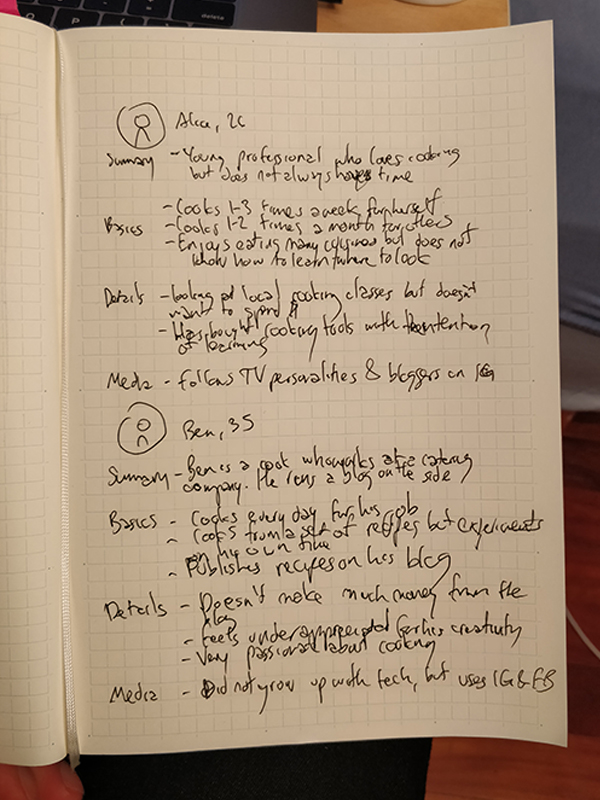 Alice, 26
Summary - Young professional who loves cooking
but does not always have time
Basics - Cooks 1-3 times a week for herself
- Cooks 1-2 times a month for others
- Enjoys eating many cuisines but does not
know how to learn/where to look
Details - looking at local cooking classes but doesn't
want to spend $
- Has bought cooking tools with the intention
of learning
Media - Follows TV personalities & bloggers on IG
Ben, 35
Summary - Ben is a cook who works at a catering
company. He runs a blog on the side
Basics - Cooks every day for his job
- Cooks from a set of recipes but experiments
on his own time
- Publishes recipes on his blog
Details - Doesn't make much money from the
blog
- Feels underappreciated for his creativity
- Very passionate about cooking
Media - Did not grow up with tech, but uses IG & FB